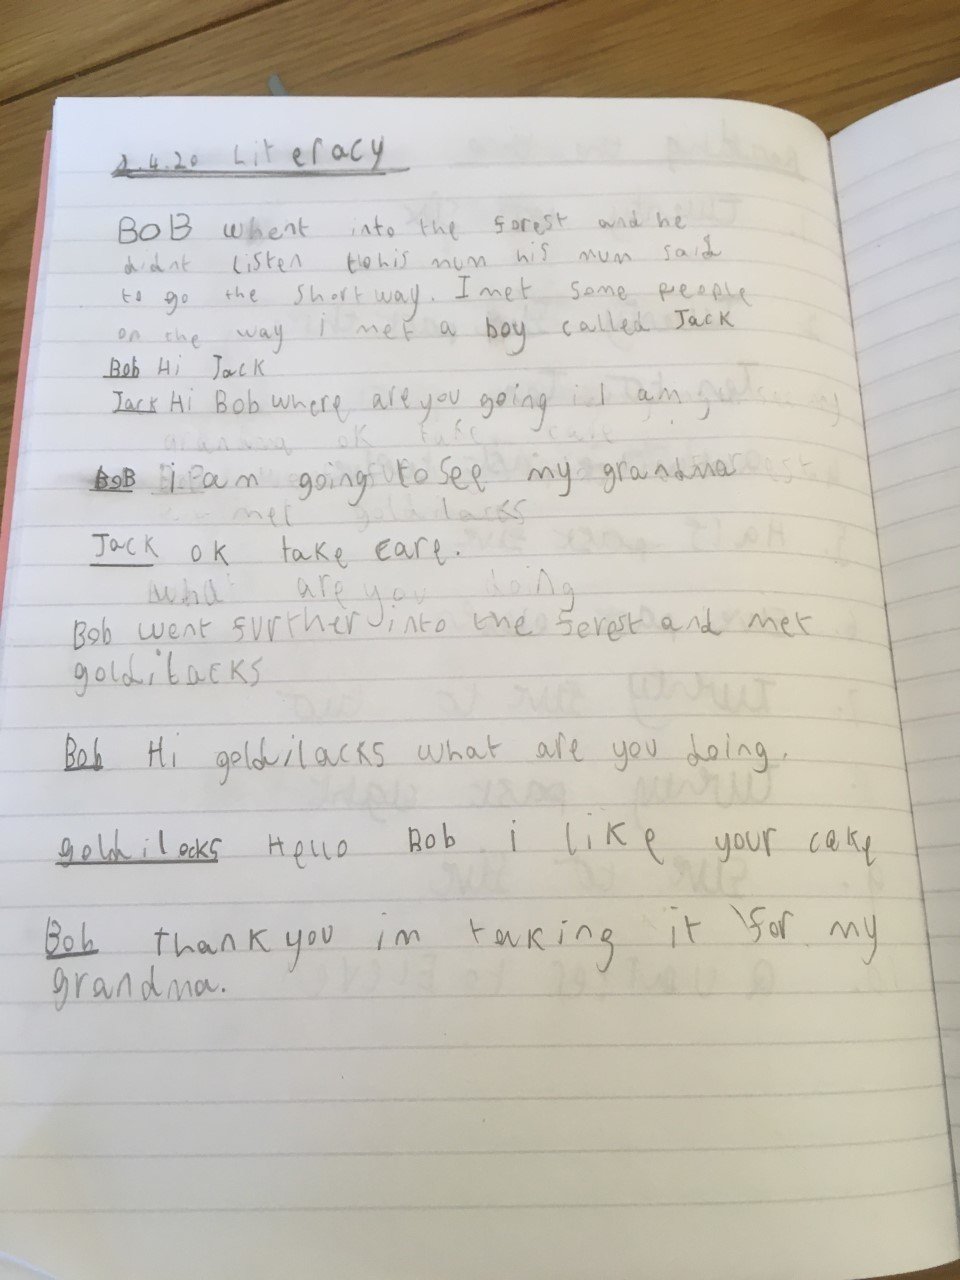 2.4.20 Literacy
BOB whent into the forest and he
didnt listen to his mum his mum said
to go the short way. I met some people
on the way i met a boy called Jack
Bob Hi Jack
Jack Hi Bob where are you going i I am
grandma ok take care
BOB i am going to see my grandma
met goldilacks
Jack ok take care.
what are you doing
Bob went further into the forest and met
goldilacks
Bob Hi goldilacks what are you doing.
goldilocks Hello Bob i like your cake
Bob thank you im taking it for my
grandma.